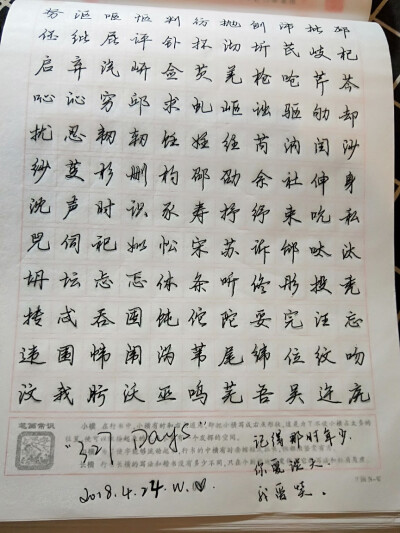 努 沤 呕 怄 利 纷 抛 创 沛 批 邳
伾 纰 屁 评 钋 抔 沏 圻 芪 歧 杞
启 弃 汽 岍 佥 芡 羌 枪 呛 芹 芩
吣 沁 穷 邱 求 虬 岖 诎 驱 劬 却
扰 忍 韧 饪 妊 纴 芮 汭 闰 沙
纱 芟 杉 删 杓 邵 劭 余 社 伸 身
沈 声 时 识 豕 寿 抒 纾 束 吮 私
兕 伺 祀 姒 忪 宋 苏 诉 邰 呔 汰
坍 坛 忐 忒 体 条 听 佟 彤 投 秃
抟 忒 吞 囤 饨 佗 陀 妥 完 汪 忘
违 围 帏 闱 沩 苇 尾 纬 位 纹 吻
汶 我 肟 沃 巫 呜 芜 吾 吴 迕 庑
笔画常识
Days"
2018.4.24.W.♡
记得那时年少
你爱谈天
我爱笑。